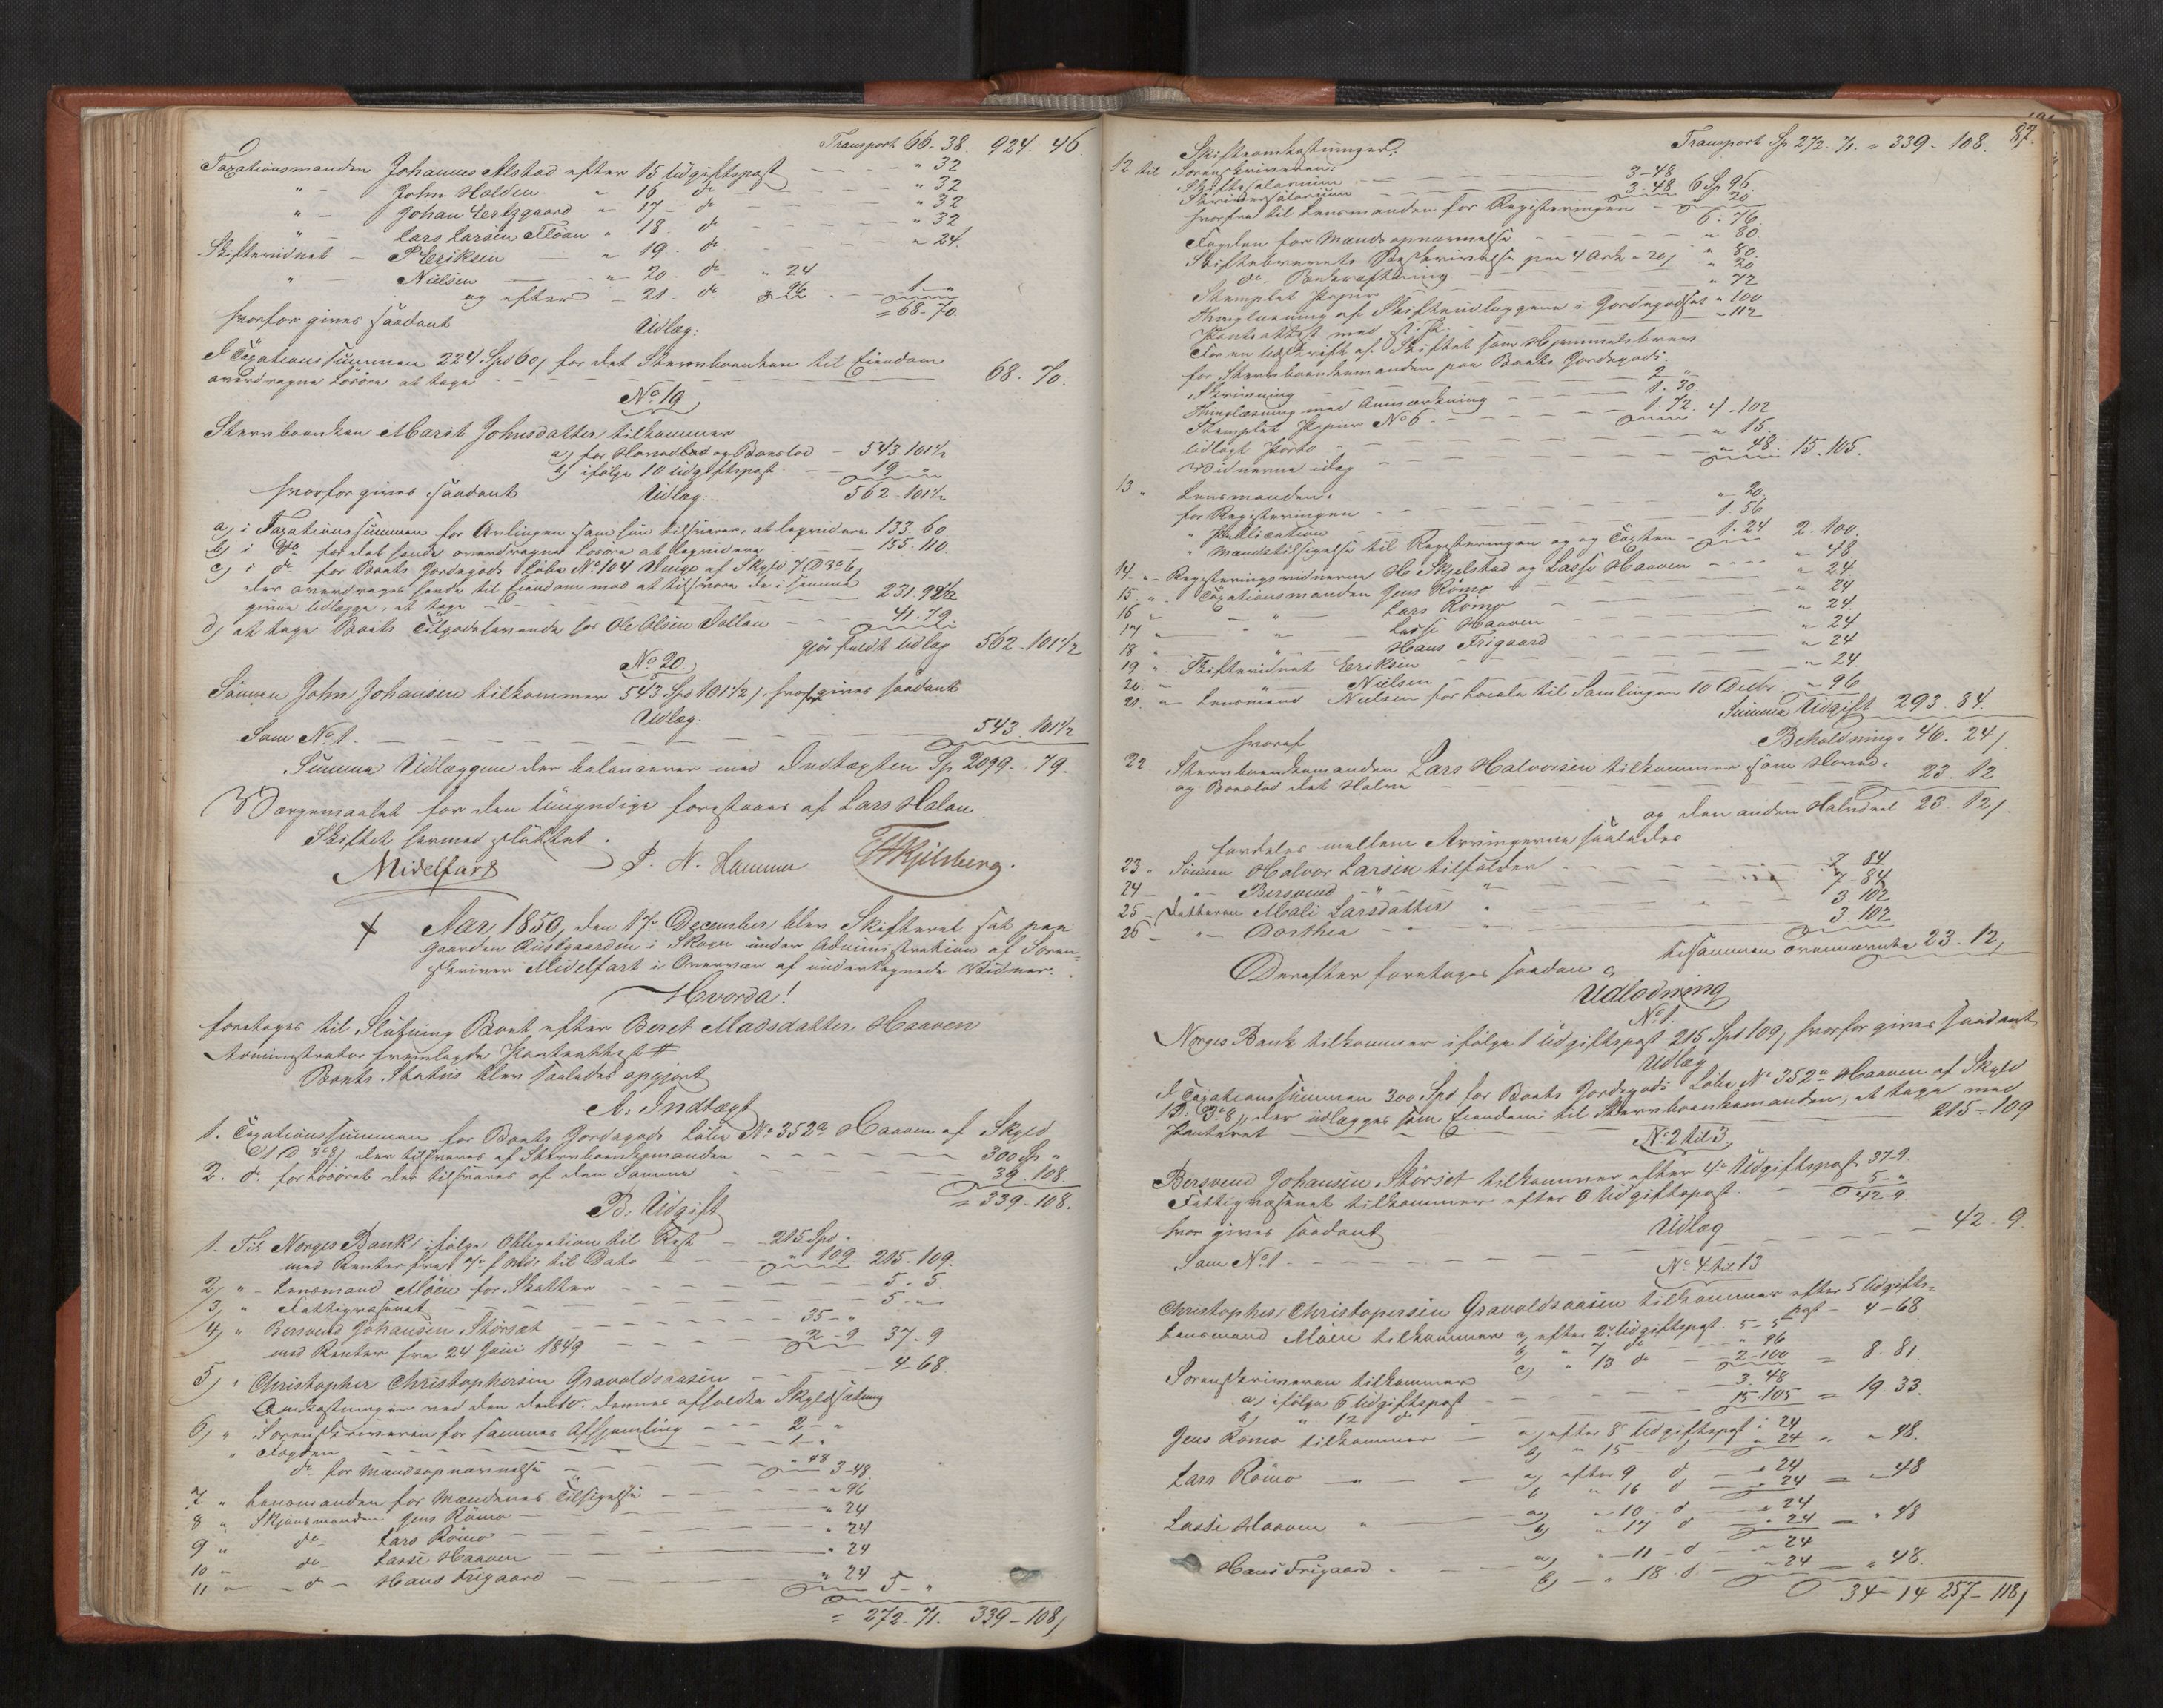 Transport 66-38. 924. 46.
Taxationsmanden Johannes Alstad efter 15 Udgiftspost - - - " 32
" - John Halden " 16 do - - - " 32
" - Johan Ertzgaard " 17 - do - - - " 32
" Lars Larsen Floan " 18. do - - - " 32
Skiftevidnet - P Eriksen - " 19. do - - - " 24.
" Nielsen - " 20. do " 24
og efter - 21. do " 96 - 1 - "
hvorfor gives saadant = 68-70.
Udlæg:
I Taxationssummen 224 Spd 60 / for det Stervboenken til Eiendom
overdragne Løsøre at tage - - - 68. 70.
No 19
Stervboenken Marit Johnsdatter tilkommer
a) for Hovedlod og Boeslod - 543. 101 1/2
b) ifølge 10 Udgiftspost - - 19 - "
hvorfor gives saadant Udlæg: 562-101 1/2
a) i Taxationssummen for Avlingen som hun tilsvarer, at leqvidere 133. 60
b) i do for det hende overdragne Løsøre at leqvidere - 155. 110.
c) i do for Boets Jordegods Løbe No 104 af Skyld
der overdrages hende til Eiendom mod at tilsvare de i samme
givne Udlægge, at tage - - - 231. 92 1/2
d) at tage Boets Tilgodehavende hos Ole Olsen - - 41. 79.
gjør fuldt Udlæg 562. 101 1/2
No 20.
Sønnen John Johansen tilkommer 543 Spd 101 1/2 /. hvorfor gives saadant
Udlæg:
Som No 1. - - - 543. 101 1/2
Summa Udlæggene der balancerer med Indtægten Sp 2099. 79.
Værgemaalet for den umyndige forestaaes af Lars Halan
Skiftet hermed sluttet.
Midelfart
Aar 1850, den 17de December blev Skifteret sat paa
Gaarden Rustgaarden i Skogn under Administration af Soren-
skriver Midelfart i Overvær af undertegnede Vidner.
Hvorda!
foretoges til Slutning Boet efter Beret Madsdatter Haaven
Administrator fremlagde Pantattest #
Boets Status blev saaledes opgjort
A. Indtægt
1. Taxationssummen for Boets Jordegods Løbe No 352a Haaven af Skyld
der tilsvares af Stervboenkemanden - - - 300 Sp "
2. do for Løsøret der tilsvares af den Samme - - - 39. 108.
= 339-108.
B. Udgift
1. Til Norges Bank ifølge Obligation til Rest - - 215 Spd "
med Renter fra til Dato - " 109 215-109.
2) " - Lensmand Moen for Skatter - - - 5 - 5.
3) " Fattigvæsenet - - - 5 - "
4) " Bersvend Johansen Størset - - - 35 - "
med Renter fra 24 Juni 1849 - - 2-9 37-9
5) " Christopher Christophersen Gravoldsaasen - - - 4-68
Omkostninger ved den dennes afholdte Skyldsætning
6) " Sorenskriveren for sammes - - - 2 - "
" Fogden - - - 1 - "
do for Mændsopnævnelse - - " 48 3-48.
7 " Lensmanden for Mændenes Tilsigelse - - - " 96
8 " Skjønsmanden Jens Rømo - - - " 24
9 " do Lars Rømo - - - " 24
10 " do Lasse Haaven - - - " 24
11 " - do - Hans Frigaard - - - " 24
5 - "
= 272-71. 339-108 /
87.
Transport Sp 272. 71. = 339-108.
Skifteomkostninger.
12 til Sorenskriveren:
Skiftesalarium - - - 3-48
Skriversalarium - - - 3-48 6 Sp 96.
hvorfra til Lensmanden for Registeringen - " 20
6. 76.
Fogden for Mændsopnævnelse - - - " 80.
Skiftebrevets Beskrivelse paa 4 Ark a 20 / " 80.
do. Bekræftning - - - " 20
Stemplet Papir - - - " 72
Thinglæsning af Skifteudlæggene i Jordegodset " 100
Pantattest med st. P. - - " 112
For en Udskrift af Skiftet som Hjemmelsbrev
for Stervboenkemanden paa Boets Jordegods.
Skrivning - - - 2 - "
Thinglæsning med Anmærkning - - - 1. 30.
Stemplet Papir No 6. - - - 1. 72. 4-102
Udlagt Porto - - - " 15.
Vidnerne idag - - - " 48. 15. 105.
13 " Lensmanden:
for Registeringen - - - " 20.
" Publication - - - 1. 56
" Mændstilsigelse til Registeringen og Taxten - 1. 24 2. 100.
14. " - Registeringsvidnerne H. Skjelstad og Lasse Haaven - - - " 48.
15. " - Taxationsmanden Jens Rømo - " 24
16 " - " Lars Rømo - - " 24
17 " " Lasse Haaven - - " 24.
18 " " Hans Frigaard - - " 24
19 " - Skiftevidnet Eriksen - - " 24
20. " " Nielsen - - " 24
21. " Lensmand Nielsen for Locale til Samlingen 10 Decbr. " 96
Summa Udgift 293. 84.
Beholdning: 46. 24 /
hvoraf
22 Stervboenkemanden Lars Halvorsen tilkommer som Hoved-
og Boeslod det Halve - - - 23. 12
og den anden Halvdeel 23. 12 /.
fordeles mellem Arvingerne saaledes
23 " Sønnen Halvor Larsen tilfalder - - - 7. 84
24 - " - Bersvend - " - " - - - 7-84
25 - Datteren Mali Larsdatter " - - - 3. 102
26 - " - Dorthea - " - " - - - 3. 102
tilsammen ovennævnte 23. 12,
Derefter foretoges saadan
Udlodning
No 1.
Norges Bank tilkommer ifølge 1 Udgiftspost 215 Spd 109 / hvorfor gives saadant
Udlæg
I Taxationssummen 300 Spd for Boets Jordegods Løbe No 352a Haaven af Skyld
der udlægges som Eiendom til Stervboenkemanden, at tage med
Panteret - - - 215-109
No 2 til 3,
Bersvend Johansen Størset tilkommer efter 4de Udgiftspost 37-9.
Fattigvæsenet tilkommer efter 3 Udgiftspost - 5 - "
42-9
hvor gives saadant Udlæg
Som No 1 - - - 42-9.
No 4 til 13
Christopher Christopersen Gravoldsaasen tilkommer efter 5 Udgifts-
post - 4-68
Lensmand Moen tilkommer a) efter 2den Udgiftspost. 5-5
b) " 7 do - " 96
c) " 13 do - 2-100 = 8. 81.
Sorenskriveren tilkommer
a) ifølge 6 Udgiftspost - - - 3. 48
b) " 12 do - - 15-105 = 19. 33.
Jens Rømo tilkommer - a) efter 8 Udgiftspost " 24
b) " 15 do " 24 " " 48.
Lars Rømo - " - a) efter 9 d - " 24
b " 16 d - " 24 = " 48
Lasse Haaven " - a) " 10 - d - " 24
b) " 17 d - " 24 = " 48
Hans Frigaard " - a) " - 11 - d - " 24
b) - " 18. d. - " 24 = " 48.
34-14 257-118 /